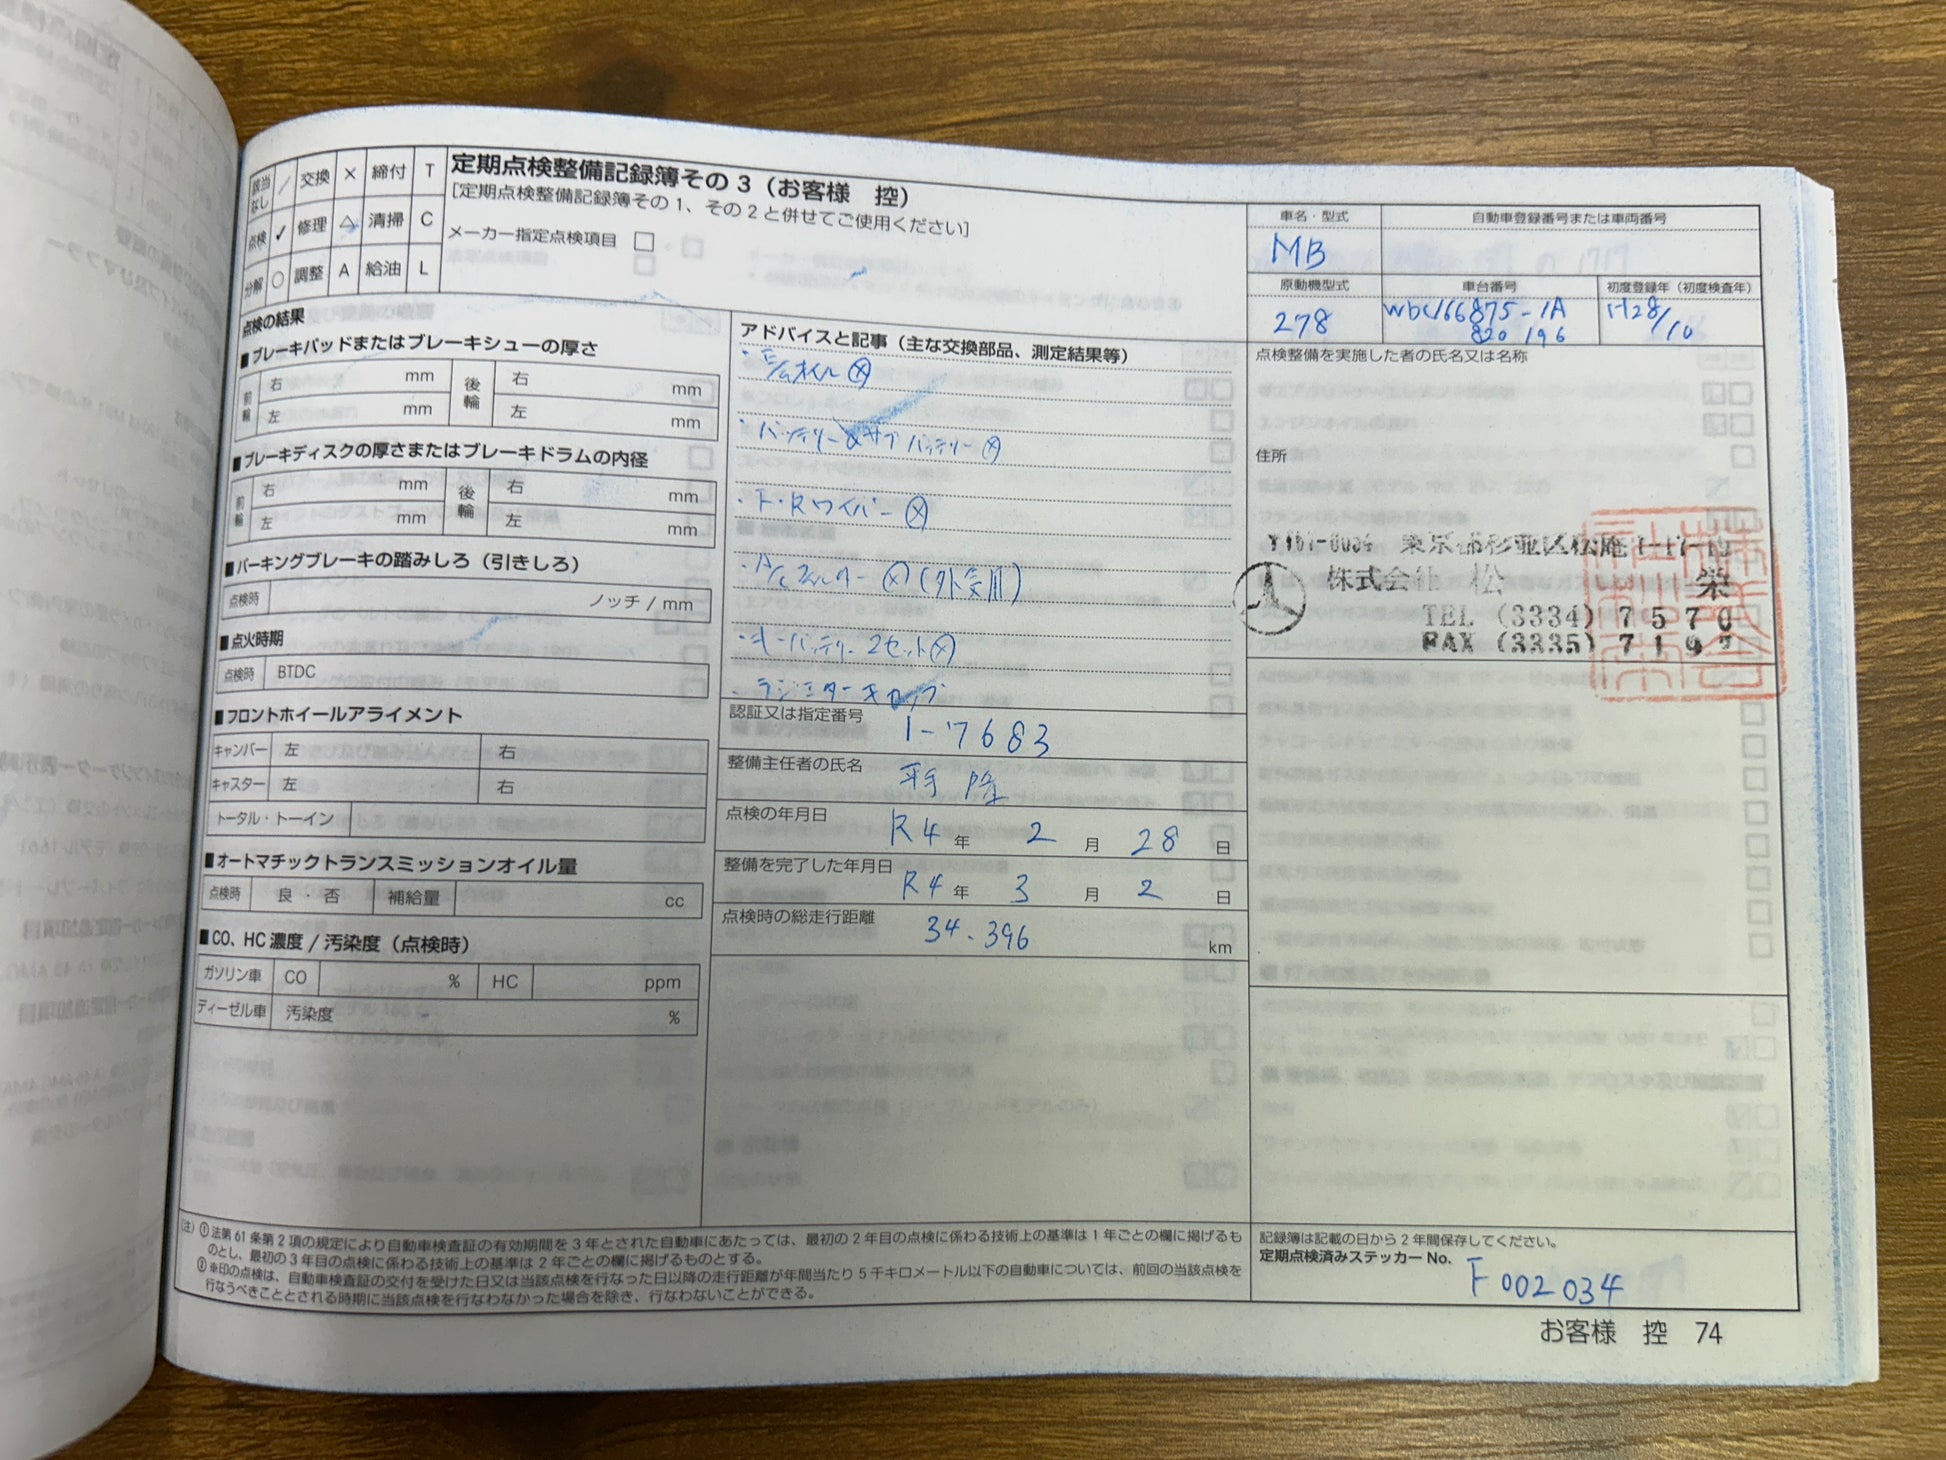 該当なし ／ 交換 × 締付 T
点検 ✓ 修理 △ 清掃 C
分解 ○ 調整 A 給油 L
定期点検整備記録簿その3（お客様 控）
[定期点検整備記録簿その1、その2と併せてご使用ください]
メーカー指定点検項目 □
車名・型式
MB
自動車登録番号または車両番号
原動機型式
278
車台番号
WDC166875-1A
820196
初度登録年（初度検査年）
H28/10
点検の結果
■ブレーキパッドまたはブレーキシューの厚さ
前輪 右 mm 後輪 右 mm
左 mm 左 mm
■ブレーキディスクの厚さまたはブレーキドラムの内径
前輪 右 mm 後輪 右 mm
左 mm 左 mm
■パーキングブレーキの踏みしろ（引きしろ）
点検時 ノッチ / mm
■点火時期
点検時 BTDC
■フロントホイールアライメント
キャンバー 左 右
キャスター 左 右
トータル・トーイン
■オートマチックトランスミッションオイル量
点検時 良・否 補給量 cc
■CO、HC濃度 / 汚染度（点検時）
ガソリン車 CO % HC ppm
ディーゼル車 汚染度 %
アドバイスと記事（主な交換部品、測定結果等）
オイル ⊗
・バッテリー&サブバッテリー ⊗
・F・Rワイパー ⊗
・A/Cフィルター ⊗ (外気用)
・キーバッテリー 2セット ⊗
・ラジエターキャップ
認証又は指定番号
1-7683
整備主任者の氏名
平手 隆
点検の年月日
R4 年 2 月 28 日
整備を完了した年月日
R4 年 3 月 2 日
点検時の総走行距離
34.396 km
点検整備を実施した者の氏名又は名称
住所
東京都杉並区松庵1-17-
株式会社 松 栄
TEL (3334) 7570
FAX (3335) 719
(注) ①法第61条第2項の規定により自動車検査証の有効期間を3年とされた自動車にあたっては、最初の2年目の点検に係わる技術上の基準は1年ごとの欄に掲げるも
のとし、最初の3年目の点検に係わる技術上の基準は2年ごとの欄に掲げるものとする。
②※印の点検は、自動車検査証の交付を受けた日又は当該点検を行なった日以降の走行距離が年間当たり5千キロメートル以下の自動車については、前回の当該点検を
行なうべきこととされる時期に当該点検を行なわなかった場合を除き、行なわないことができる。
記録簿は記載の日から2年間保存してください。
定期点検済みステッカーNo.
F002034
お客様 控 74